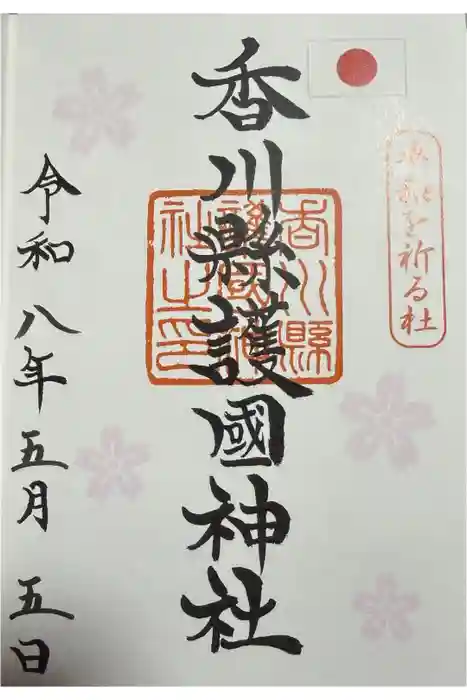 を祈る社
香川縣護國神社
香川縣護國神社之印
令和八年五月五日